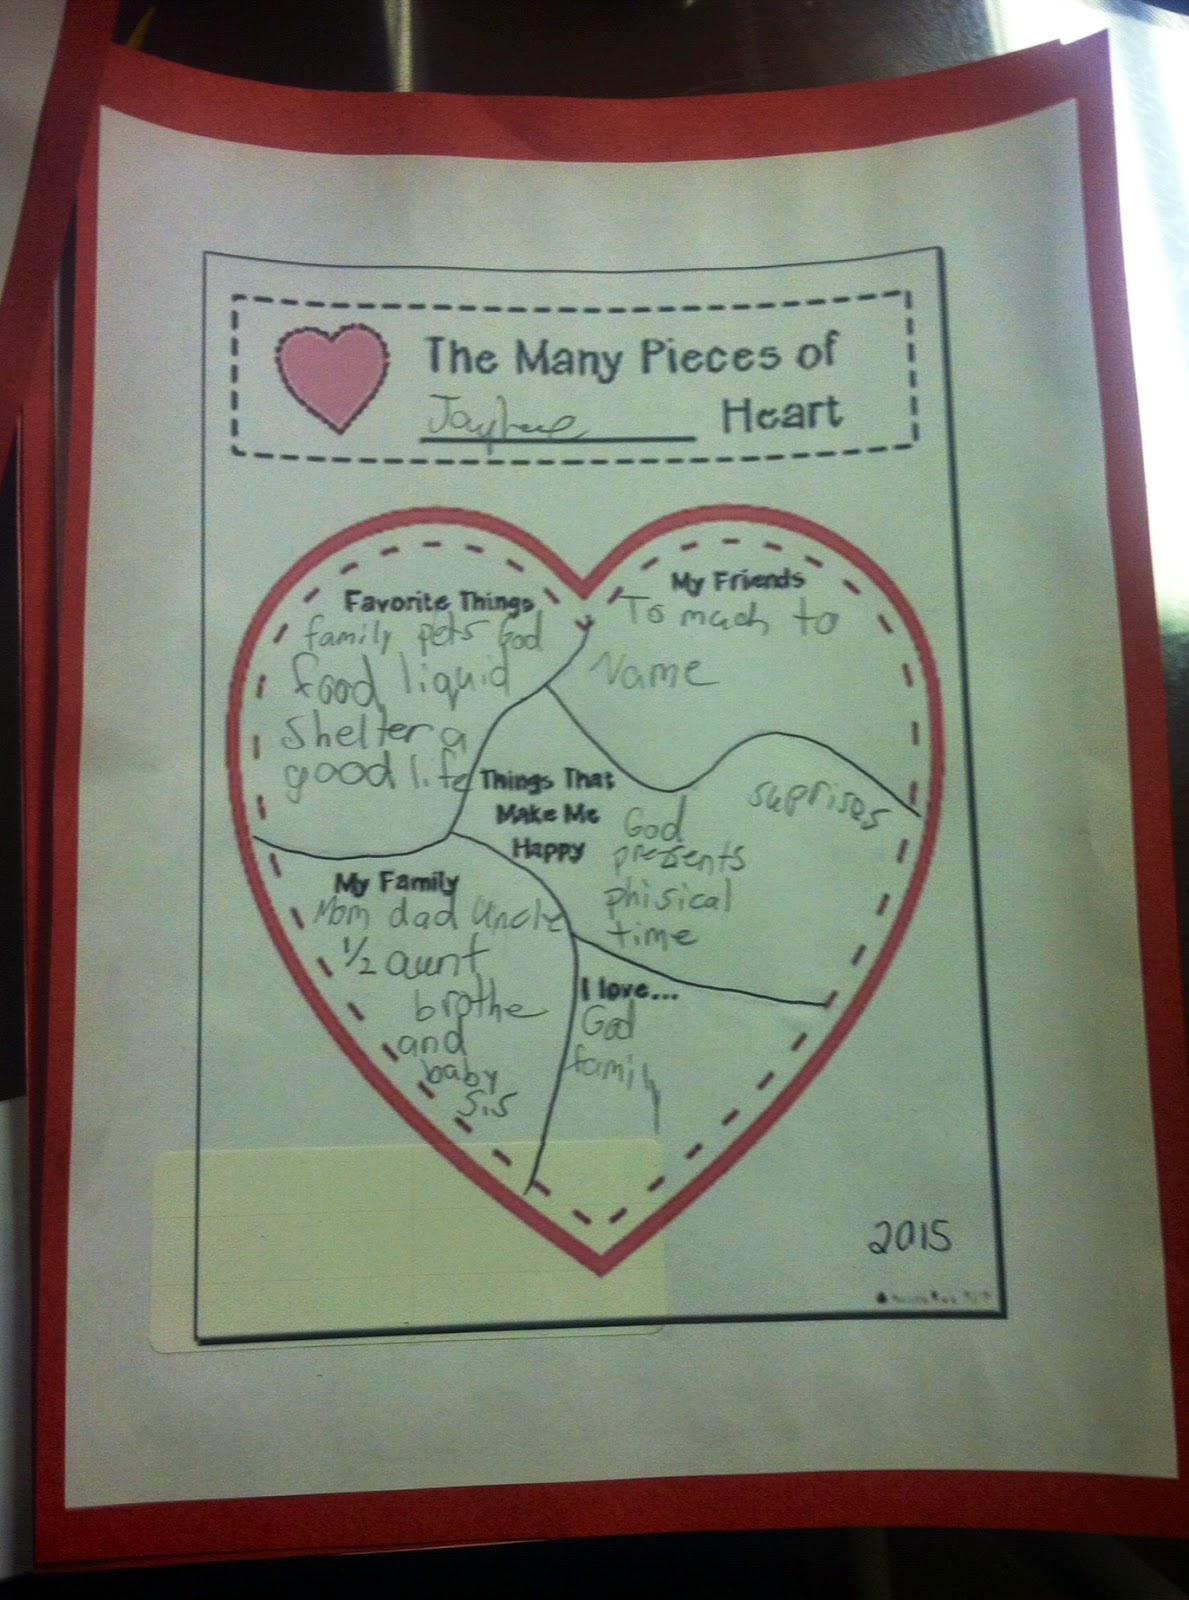 The Many Pieces of
Heart
Favorite Things
family pets God
food liquid
shelter a
good life
My Friends
To much to
Name
Things That
Make Me
Happy
God
presents
phisical
time
suprises
My Family
Mom dad Uncle
1/2 aunt
brothe
and
baby
sis
I love...
God
family
2015